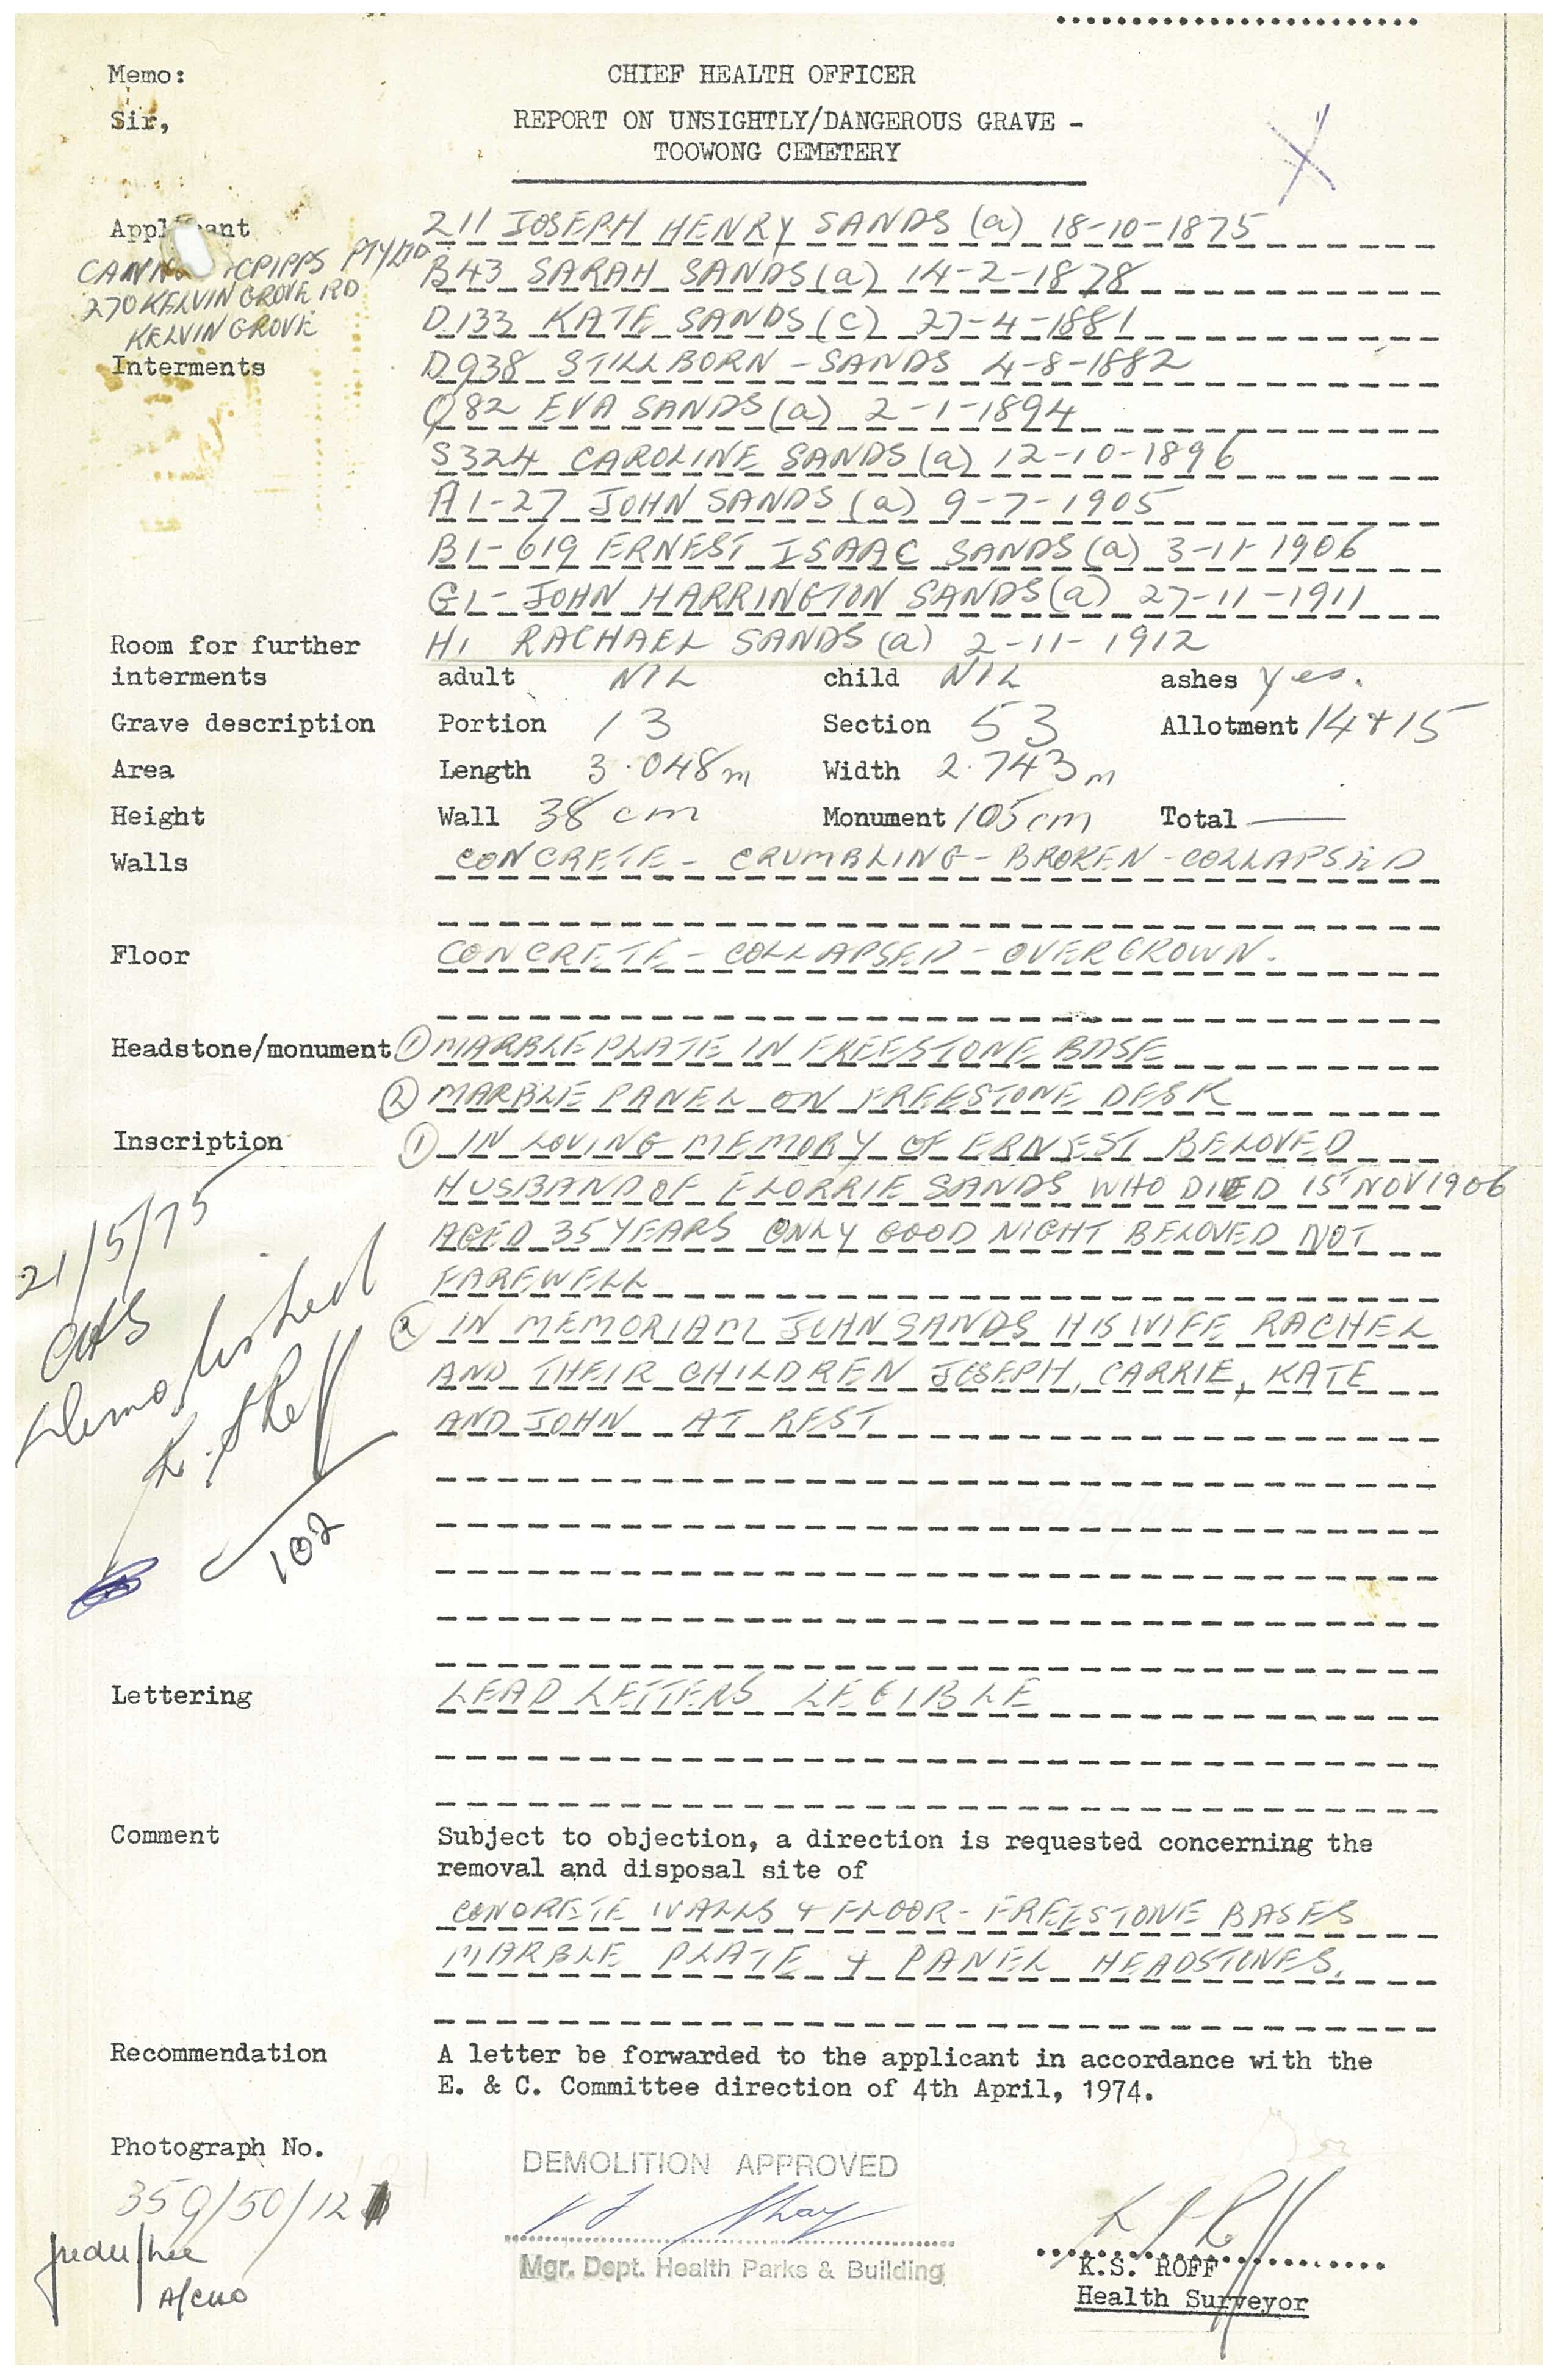 Memo:
CHIEF HEALTH OFFICER
Sir,
REPORT ON UNSIGHTLY/DANGEROUS GRAVE -
TOOWONG CEMETERY
Applicant
CRIPPS PTY LTD
270 KELVIN GROVE RD
KELVIN GROVE
Interments
211 JOSEPH HENRY SANDS (a) 18-10-1875
B43 SARAH SANDS (a) 14-2-1878
D.133 KATE SANDS (c) 27-4-1881
D938 STILLBORN - SANDS 4-8-1882
Q82 EVA SANDS (a) 2-1-1894
S324 CAROLINE SANDS (a) 12-10-1896
A1-27 JOHN SANDS (a) 9-7-1905
B1-619 ERNEST ISAAC SANDS (a) 3-11-1906
G1- JOHN HARRINGTON SANDS (a) 27-11-1911
H1 RACHAEL SANDS (a) 2-11-1912
Room for further
interments adult NIL child NIL ashes yes.
Grave description Portion 13 Section 53 Allotment 14+15
Area Length 3.048m Width 2.743m
Height Wall 38 cm Monument 105cm Total —
Walls CONCRETE - CRUMBLING - BROKEN - COLLAPSED
Floor CONCRETE - COLLAPSED - OVERGROWN.
Headstone/monument ① MARBLE PLATE IN FREESTONE BASE
② MARBLE PANEL ON FREESTONE DESK
Inscription ① IN LOVING MEMORY OF ERNEST BELOVED
HUSBAND OF FLORRIE SANDS WHO DIED 15 NOV 1906
AGED 35 YEARS ONLY GOOD NIGHT BELOVED NOT
FAREWELL
② IN MEMORIAM JOHN SANDS HIS WIFE RACHEL
AND THEIR CHILDREN JOSEPH, CARRIE, KATE
AND JOHN AT REST
21/5/75
Demolished
102
Lettering LEAD LETTERS LEGIBLE
Comment Subject to objection, a direction is requested concerning the
removal and disposal site of
CONCRETE WALLS + FLOOR - FREESTONE BASES
MARBLE PLATE + PANEL HEADSTONES.
Recommendation A letter be forwarded to the applicant in accordance with the
E. & C. Committee direction of 4th April, 1974.
Photograph No.
359/50/12
DEMOLITION APPROVED
Mgr. Dept. Health Parks & Building
A/CHO
K.S. ROFF
Health Surveyor